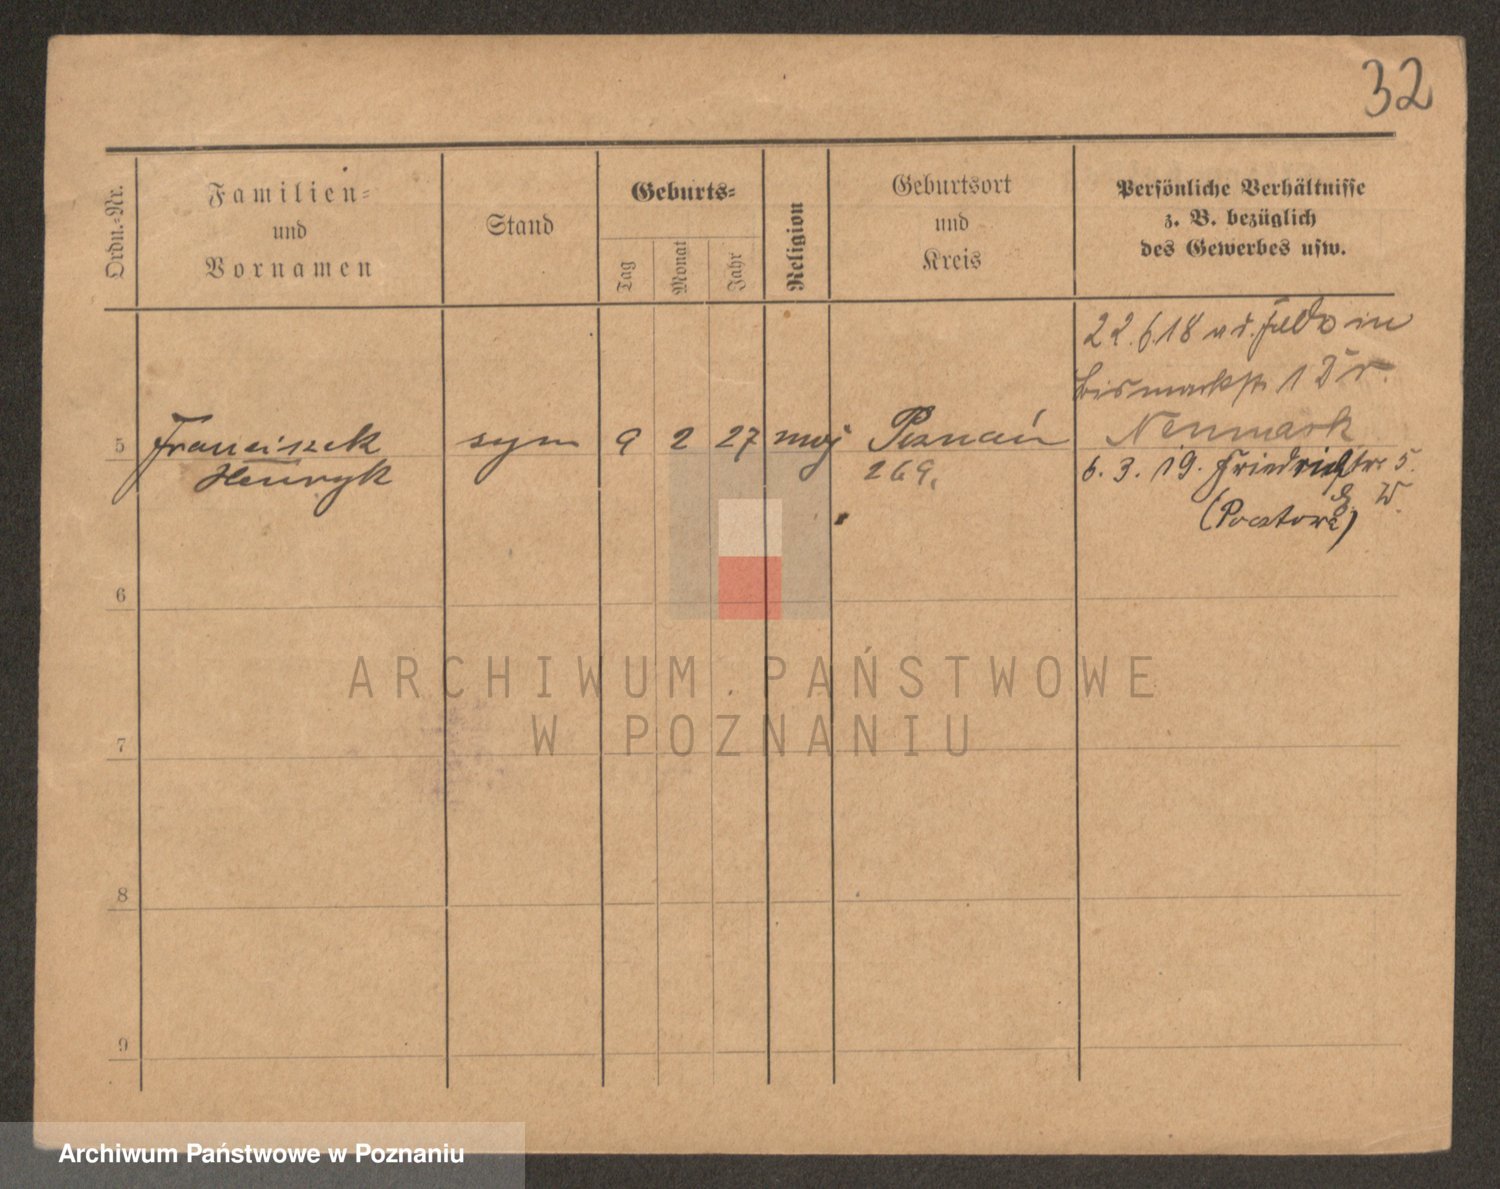 32
Ordn.-Nr.
Familien-
und
Vornamen
Stand
Geburts-
Tag
Monat
Jahr
Religion
Geburtsort
und
Kreis
Persönliche Verhältnisse
z. B. bezüglich
des Gewerbes usw.
22.6.18 a d. Felde in
Bismarckstr 1
Neumark
5 Franciszek syn 9 2 27 moj Poznań
Henryk 269.
6.3.19. Friedrichstr 5.
W.
6
7
8
9
ARCHIWUM PAŃSTWOWE
W POZNANIU
Archiwum Państwowe w Poznaniu